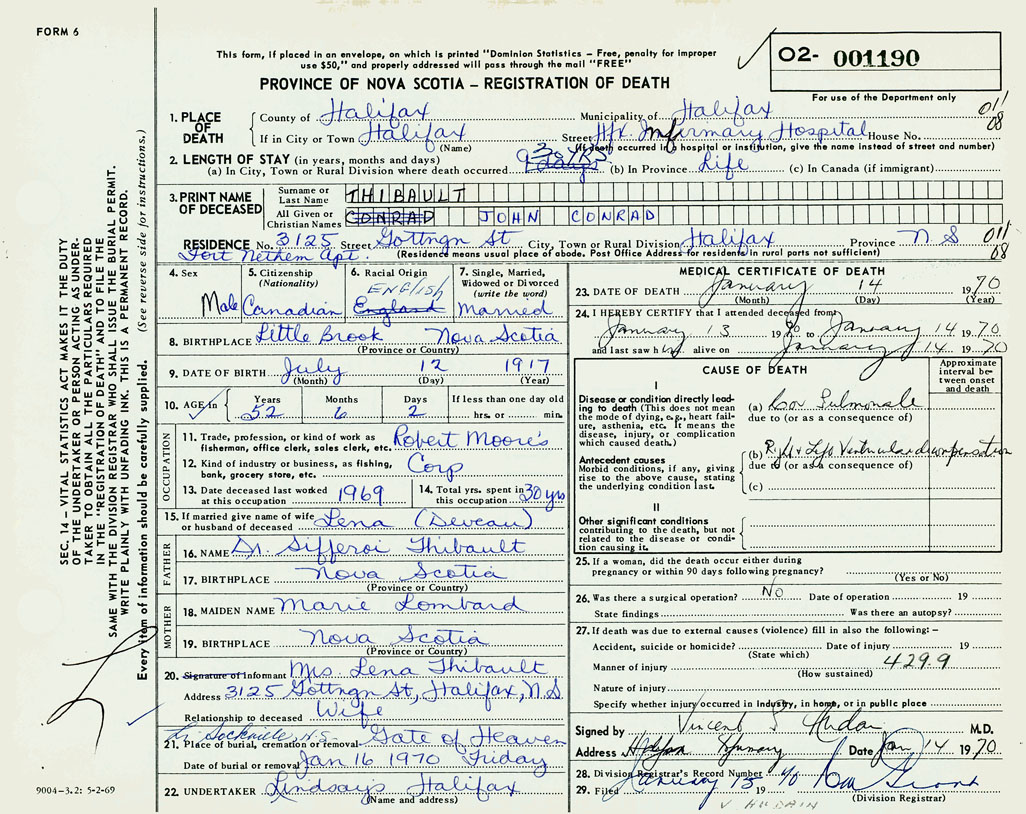 FORM 6
This form, if placed in an envelope, on which is printed "Dominion Statistics – Free, penalty for improper
use $50," and properly addressed will pass through the mail "FREE"
PROVINCE OF NOVA SCOTIA – REGISTRATION OF DEATH
O2- 001190
For use of the Department only
SEC. 14 – VITAL STATISTICS ACT MAKES IT THE DUTY
OF THE UNDERTAKER OR PERSON ACTING AS UNDER-
TAKER TO OBTAIN ALL THE PARTICULARS REQUIRED
IN THE "REGISTRATION OF DEATH" AND TO FILE THE
SAME WITH THE DIVISION REGISTRAR WHO SHALL ISSUE THE BURIAL PERMIT.
WRITE PLAINLY WITH UNFADING INK. THIS IS A PERMANENT RECORD.
Every item of information should be carefully supplied. (See reverse side for instructions.)
1. PLACE OF DEATH
County of Halifax Municipality of Halifax 011
08
If in City or Town Halifax Street Hfx. Infirmary Hospital House No.
(Name) (If death occurred in a hospital or institution, give the name instead of street and number)
2. LENGTH OF STAY (in years, months and days) 38 YRS
(a) In City, Town or Rural Division where death occurred 9 days (b) In Province Life (c) In Canada (if immigrant)
3. PRINT NAME OF DECEASED
Surname or Last Name THIBAULT
All Given or Christian Names CONRAD JOHN CONRAD
RESIDENCE No. 3125 Street Gottngn St City, Town or Rural Division Halifax Province N S 011
08
Fort Nethem Apt. (Residence means usual place of abode. Post Office Address for residents in rural parts not sufficient)
4. Sex Male
5. Citizenship (Nationality) Canadian
6. Racial Origin ENGlish England
7. Single, Married, Widowed or Divorced (write the word) Married
8. BIRTHPLACE Little Brook Nova Scotia
(Province or Country)
9. DATE OF BIRTH July 12 1917
(Month) (Day) (Year)
10. AGE in Years 52 Months 6 Days 2 If less than one day old hrs. or min.
OCCUPATION
11. Trade, profession, or kind of work as fisherman, office clerk, sales clerk, etc. Robert Moore's
12. Kind of industry or business, as fishing, bank, grocery store, etc. Corp
13. Date deceased last worked at this occupation 1969
14. Total yrs. spent in this occupation 30 yrs
15. If married give name of wife or husband of deceased Lena (Deveau)
FATHER
16. NAME Dr. Sifferoi Thibault
17. BIRTHPLACE Nova Scotia
(Province or Country)
MOTHER
18. MAIDEN NAME Marie Lombard
19. BIRTHPLACE Nova Scotia
(Province or Country)
20. Signature of Informant Mrs Lena Thibault
Address 3125 Gottngn St, Halifax, N.S
Relationship to deceased Wife
Lr. Sackville, N.S.
21. Place of burial, cremation or removal Gate of Heaven
Date of burial or removal Jan 16 1970 Friday
22. UNDERTAKER Lindsays Halifax
(Name and address)
9004-3.2: 5-2-69
MEDICAL CERTIFICATE OF DEATH
23. DATE OF DEATH January 14 1970
(Month) (Day) (Year)
24. I HEREBY CERTIFY that I attended deceased from
January 13 1970 to January 14 1970
and last saw him alive on January 14 1970
CAUSE OF DEATH
Approximate interval between onset and death
I
Disease or condition directly leading to death (This does not mean the mode of dying, e.g., heart failure, asthenia, etc. It means the disease, injury, or complication which caused death.)
(a) Cor Pulmonale
due to (or as a consequence of)
Antecedent causes
Morbid conditions, if any, giving rise to the above cause, stating the underlying condition last.
(b) Right & Left Ventricular decompensation
due to (or as a consequence of)
(c)
II
Other significant conditions
contributing to the death, but not related to the disease or condition causing it.
25. If a woman, did the death occur either during
pregnancy or within 90 days following pregnancy?
(Yes or No)
26. Was there a surgical operation? No Date of operation 19
State findings Was there an autopsy?
27. If death was due to external causes (violence) fill in also the following: –
Accident, suicide or homicide? Date of injury 19
(State which)
Manner of injury 429.9
(How sustained)
Nature of injury
Specify whether injury occurred in industry, in home, or in public place
Signed by Vincent M.D.
Address Halifax Infirmary Date Jan 14 1970
28. Division Registrar's Record Number 40
29. Filed January 15 19
(Division Registrar)
V HUDAIN